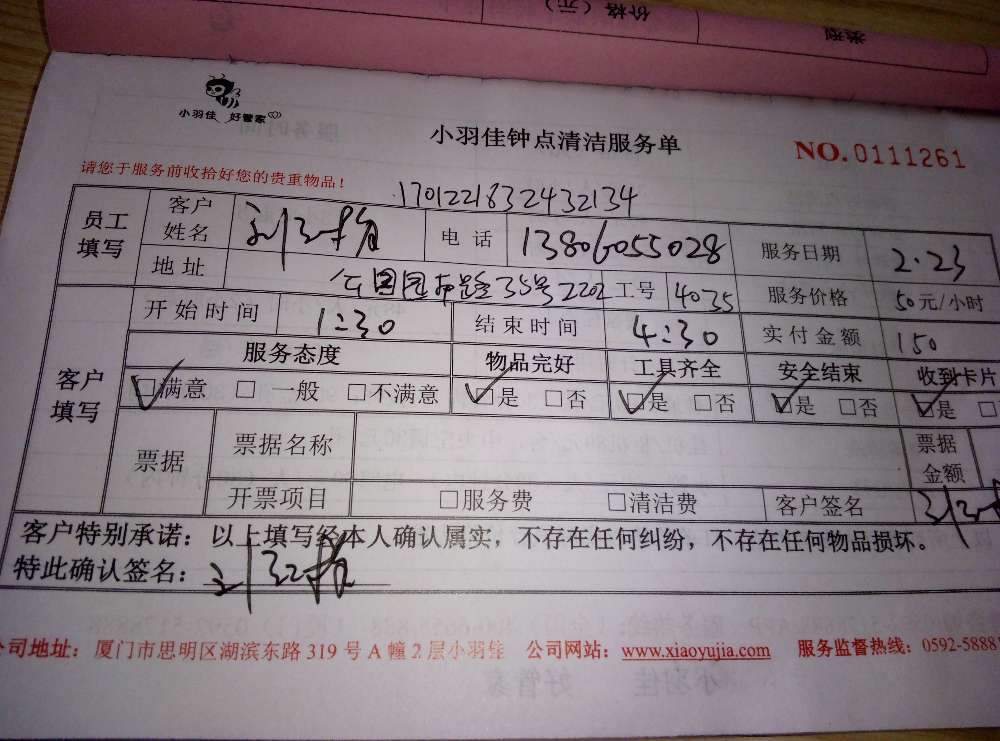 价格（元） 类型
小羽佳 好管家
小羽佳钟点清洁服务单
NO.0111261
请您于服务前收拾好您的贵重物品！
1701221832432134
员工填写 客户姓名 电话 13806055028 服务日期 2.23
地址 35号2202 工号 4035 服务价格 50元/小时
开始时间 1:30 结束时间 4:30 实付金额 150
客户填写 服务态度 物品完好 工具齐全 安全结束 收到卡片
☑满意 □一般 □不满意 ☑是 □否 ☑是 □否 ☑是 □否 ☑是 □
票据 票据名称 票据金额
开票项目 □服务费 □清洁费 客户签名
客户特别承诺：以上填写经本人确认属实，不存在任何纠纷，不存在任何物品损坏。
特此确认签名：
公司地址：厦门市思明区湖滨东路 319 号 A 幢 2 层小羽佳 公司网站：www.xiaoyujia.com 服务监督热线：0592-5888